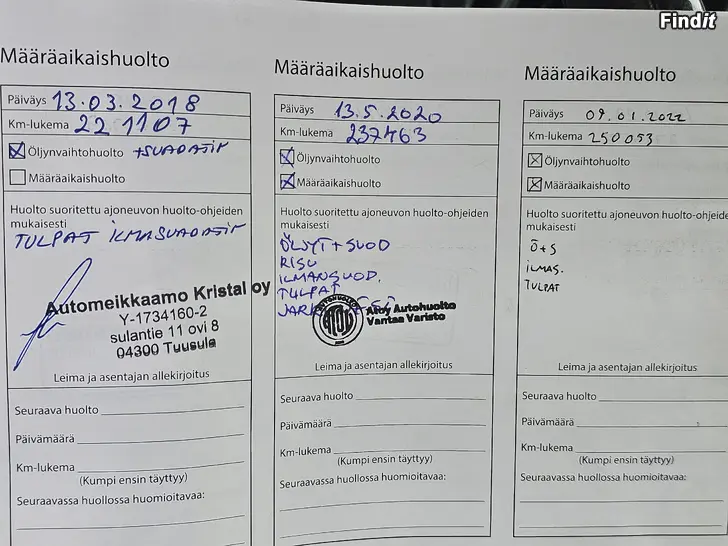 Findit
Määräaikaishuolto
Päiväys 13.03.2018
Km-lukema 221107
Öljynvaihtohuolto +SUODATIN
Määräaikaishuolto
Huolto suoritettu ajoneuvon huolto-ohjeiden
mukaisesti
TULPAT ILMASUODATIN
Automeikkaamo Kristal oy
Y-1734160-2
sulantie 11 ovi 8
04300 Tuusula
Leima ja asentajan allekirjoitus
Seuraava huolto
Päivämäärä
Km-lukema
(Kumpi ensin täyttyy)
Seuraavassa huollossa huomioitavaa:
Määräaikaishuolto
Päiväys 13.5.2020
Km-lukema 237463
Öljynvaihtohuolto
Määräaikaishuolto
Huolto suoritettu ajoneuvon huolto-ohjeiden
mukaisesti
ÖLJYT+SUOD
RISU
ILMANSUOD.
TULPAT
Autohuolto
Vantaa Varisto
Leima ja asentajan allekirjoitus
Seuraava huolto
Päivämäärä
Km-lukema
(Kumpi ensin täyttyy)
Seuraavassa huollossa huomioitavaa:
Määräaikaishuolto
Päiväys 09.01.2022
Km-lukema 250053
Öljynvaihtohuolto
Määräaikaishuolto
Huolto suoritettu ajoneuvon huolto-ohjeiden
mukaisesti
Ö+S
ILMAS.
TULPAT
Leima ja asentajan allekirjoitus
Seuraava huolto
Päivämäärä
Km-lukema
(Kumpi ensin täyttyy)
Seuraavassa huollossa huomioitavaa: